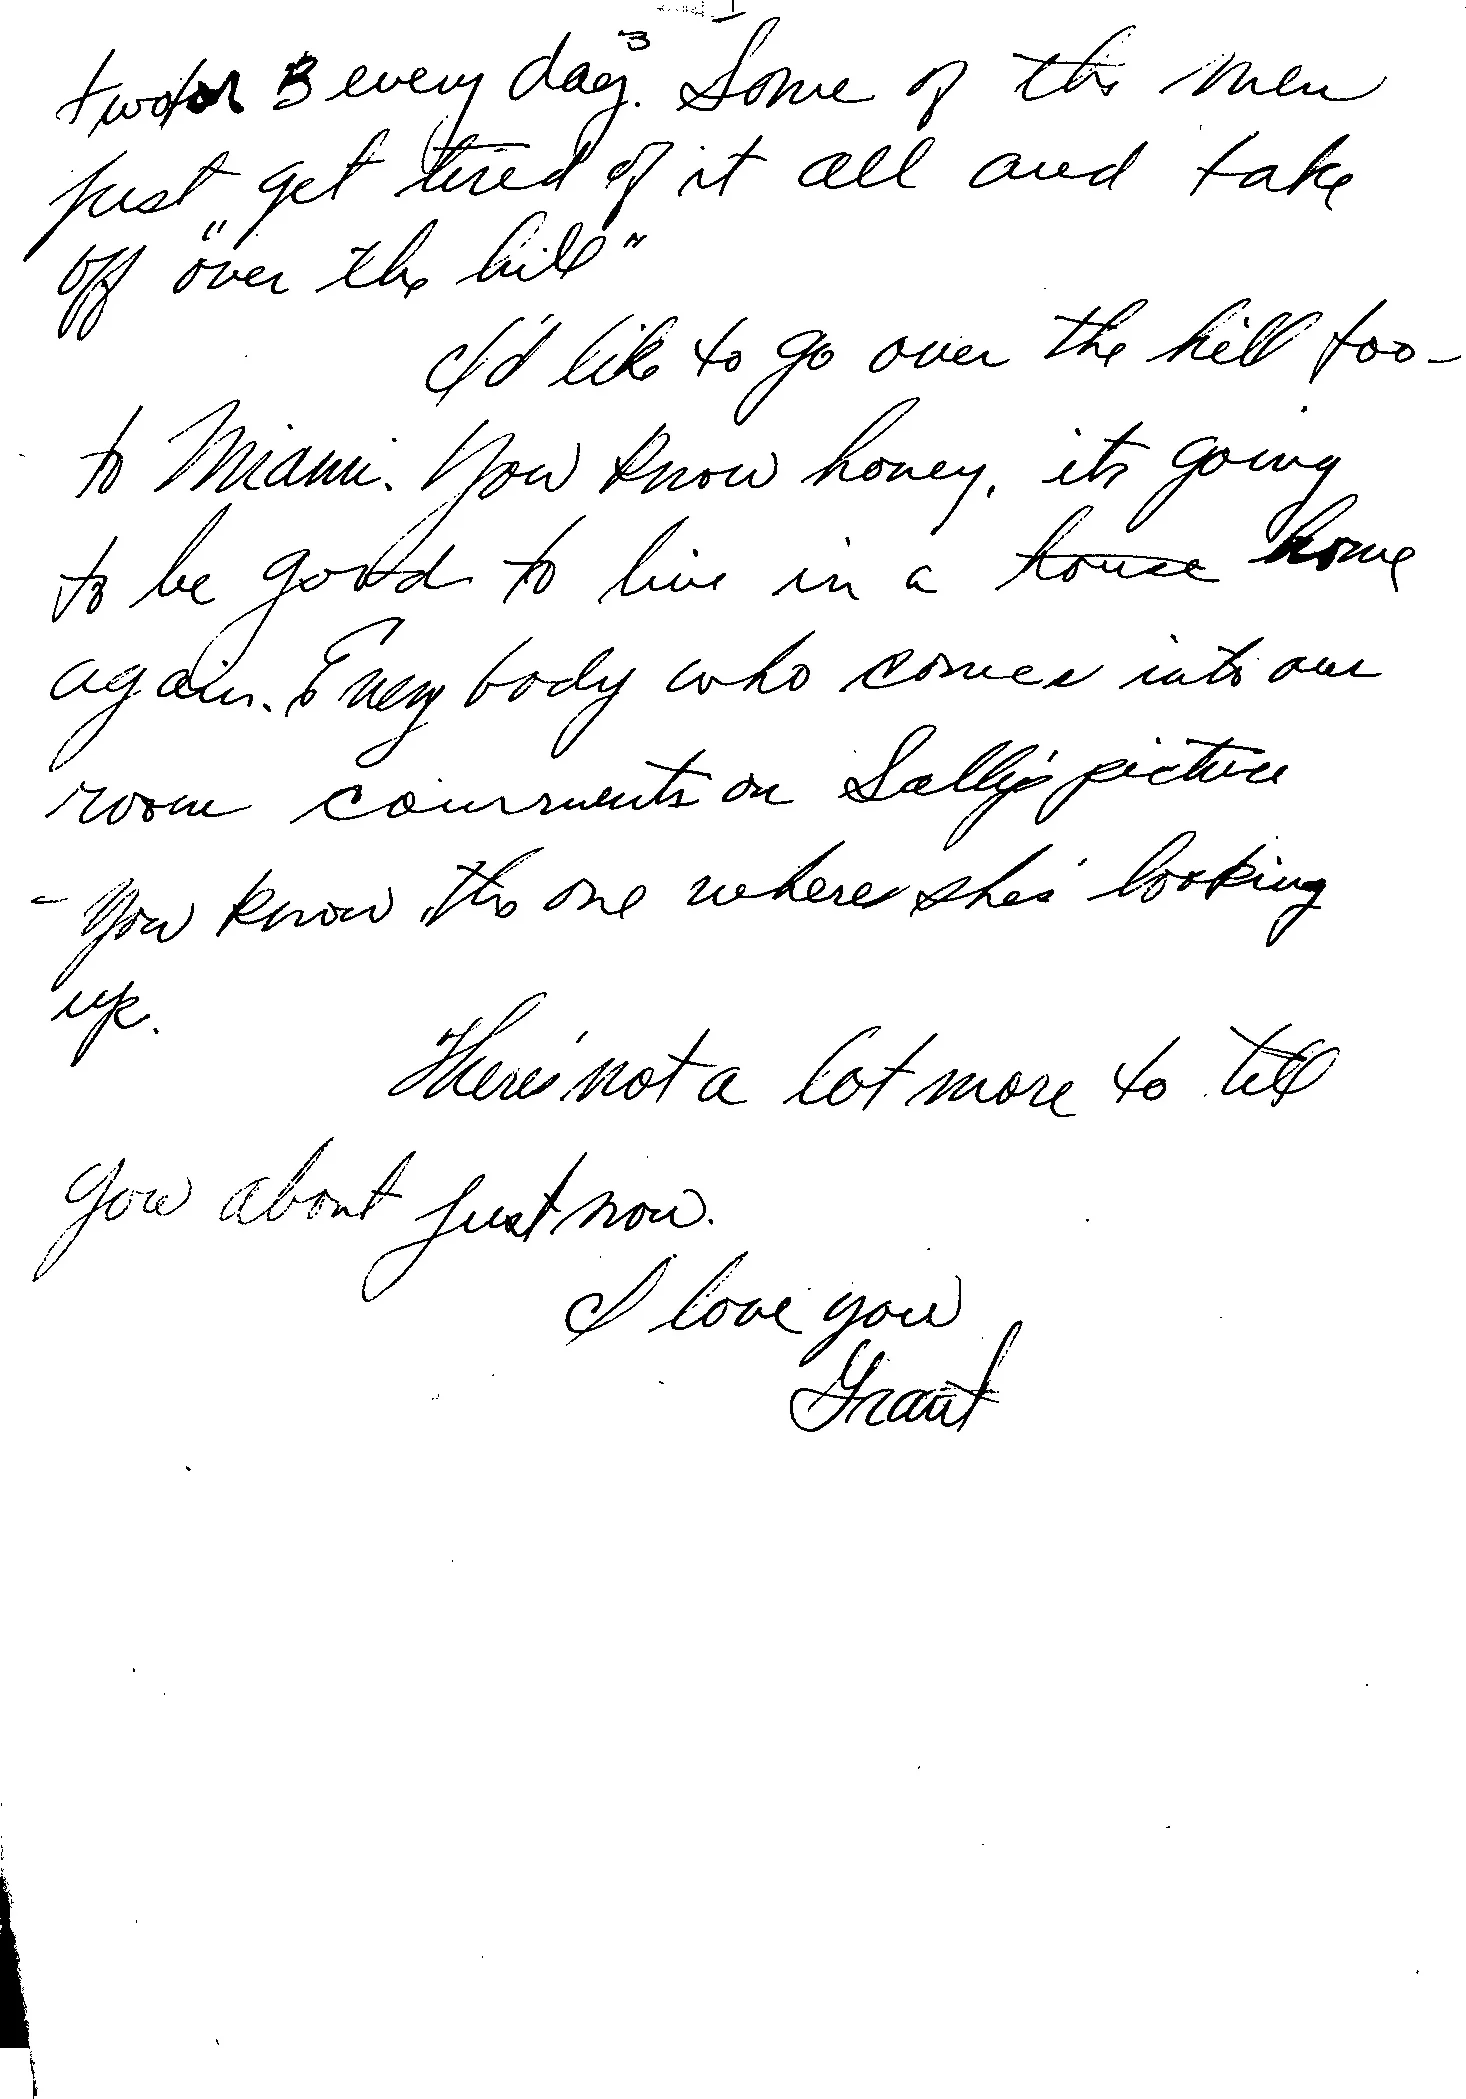 two or 3 every day. Some of the men
just get tired of it all and take
off "over the hill"
I'd like to go over the hill too-
to Miami. You know honey, its going
to be good to live in a house home
again. Every body who comes into our
room comments on Sally's picture
- you know the one where she's looking
up.
There's not a lot more to tell
you about just now.
I love you
Grant